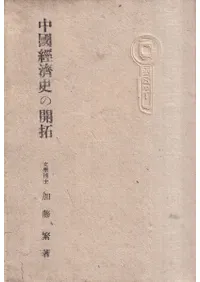 中國經濟史の開拓
文學博士 加藤 繁 著